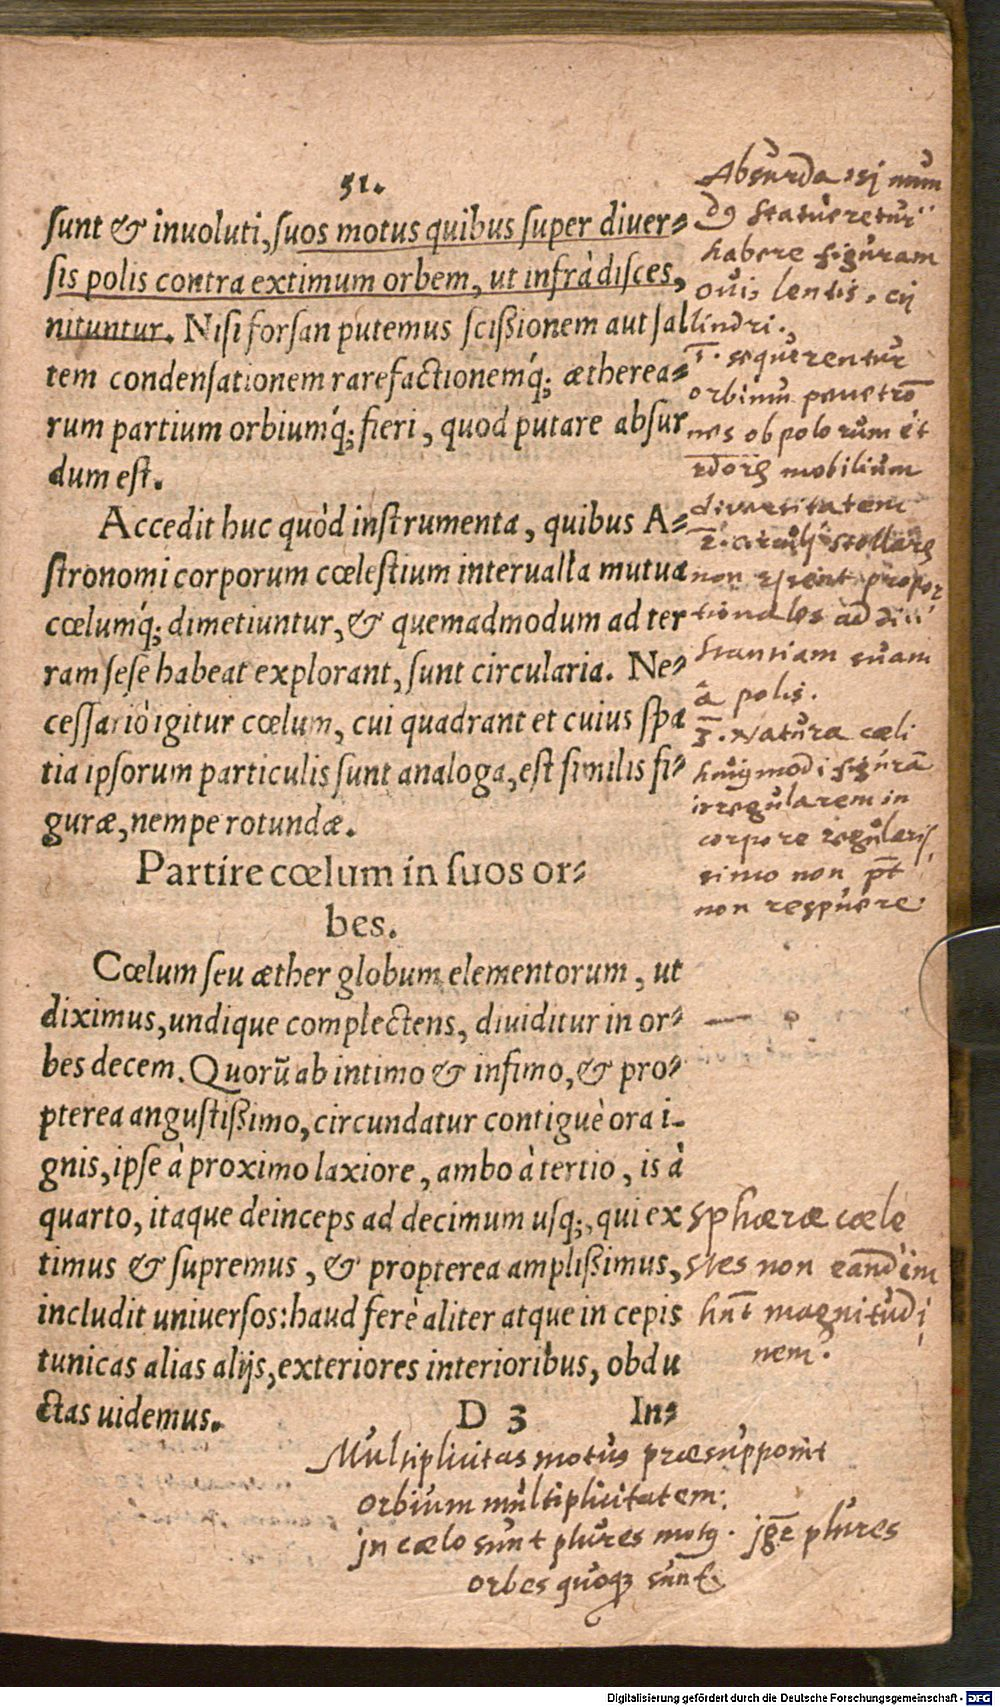 51.
sunt & inuoluti, suos motus quibus super diuer⸗
sis polis contra extimum orbem, ut infrà disces,
nituntur. Nisi forsan putemus scißionem aut sal
tem condensationem rarefactionemq́; ætherea⸗
rum partium orbiumq́; fieri, quod putare absur
dum est.
Accedit huc quòd instrumenta, quibus A⸗
stronomi corporum cœlestium interualla mutua
cœlumq́; dimetiuntur, & quemadmodum ad ter
ram sese habeat explorant, sunt circularia. Ne⸗
cessariò igitur cœlum, cui quadrant et cuius spa
tia ipsorum particulis sunt analoga, est similis fi⸗
guræ, nempe rotundæ.
Partire cœlum in suos or⸗
bes.
Cœlum seu æther globum elementorum, ut
diximus, undique complectens, diuiditur in or⸗
bes decem. Quorũ ab intimo & infimo, & pro⸗
pterea angustißimo, circundatur contiguè ora i⸗
gnis, ipse à proximo laxiore, ambo à tertio, is à
quarto, itaque deinceps ad decimum usq;, qui ex
timus & supremus, & propterea amplißimus,
includit uniuersos: haud ferè aliter atque in cepis
tunicas alias alijs, exteriores interioribus, obdu
ctas uidemus.
D 3 In⸗
Absurda, si mun
statueretur
habere figuram
ovi, lentis, cy
lindri.
1. sequerentur
orbium penetrõ
nes ob polorum et
mobilium
diversitatem
2. circuli stellares
non essent propor
tionales ad di
stantiam suam
â polis.
3. Natura cæli
huiꝰmodi figurã
irregularem in
corpore regularis
simo non pt
non respuere.
sphæræ cæle
stes non eandem
hñt magnitudi
nem.
Multiplicitas motus præsupponit
orbium multiplicitatem:
in cælo sunt plures motꝰ. plures
orbes quoqꝫ sunt.